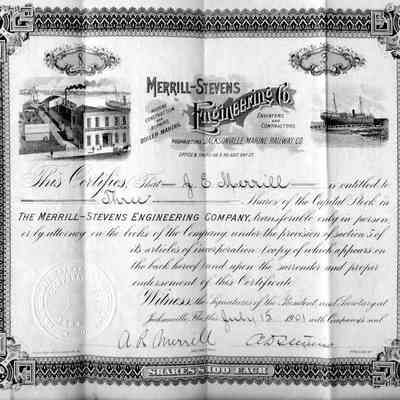 MERRILL-STEVENS
Engineering Co.
MARINE
CONSTRUCTION
BOILER MAKING
ENGINEERS
AND
CONTRACTORS
PROPRIETORS JACKSONVILLE MARINE RAILWAY CO.
This Certifies, That J. E. Merrill is entitled to
Three Shares of the Capital Stock in
THE MERRILL-STEVENS ENGINEERING COMPANY, transferable only in person,
or by attorney on the books of the Company under the provision of section 5 of
its articles of incorporation (a copy of which appears on
the back hereof) and upon the surrender and proper
endorsement of this Certificate.
Witness, the signatures of the President and Secretary at
Jacksonville, Fla. this July 15 1901 with Company's seal
A R Merrill A D Stevens
SHARES $100 EACH